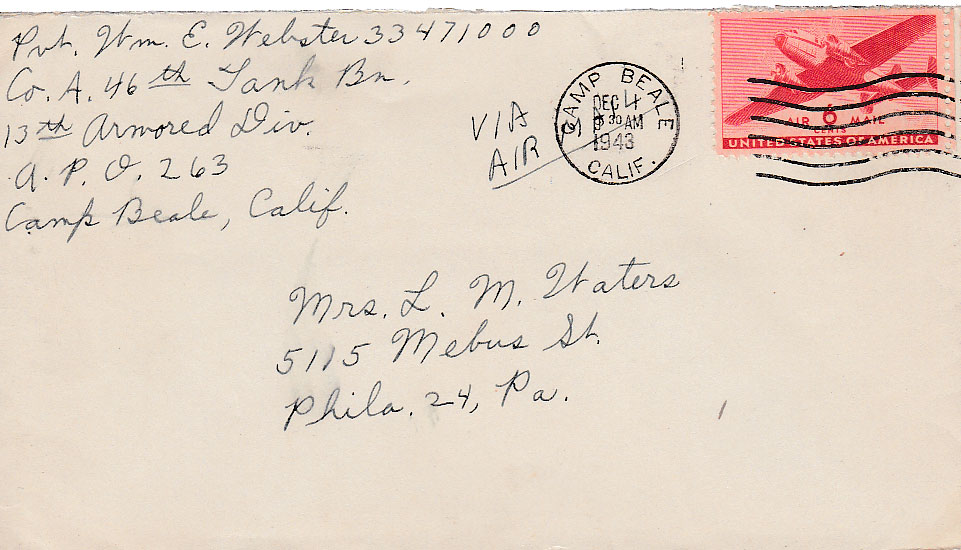 Pvt. Wm. E. Webster 33471000
Co. A. 46th Tank Bn.
13th Armored Div.
A. P. O. 263
Camp Beale, Calif.
VIA
AIR
CAMP BEALE
DEC 4
9 30 AM
1943
CALIF.
6
AIR MAIL
CENTS
UNITED STATES OF AMERICA
Mrs. L. M. Waters
5115 Mebus St.
Phila. 24, Pa.